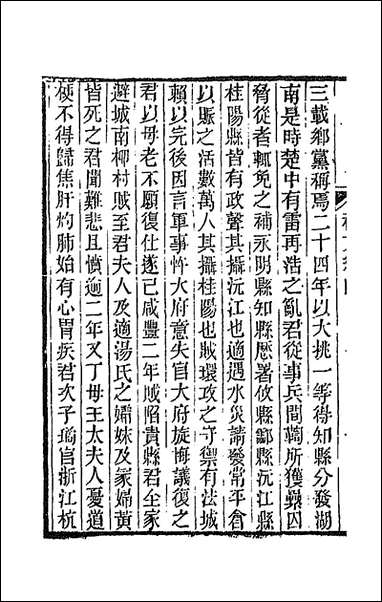 三載鄉黨稱焉二十四年以大挑一等得知縣分發湖
南是時楚中有雷再浩之亂君從事兵間鞫所獲纍囚
脅從者輒免之補永明縣知縣歷署攸縣酃縣沅江縣
桂陽縣皆有政聲其攝沅江也適遇水災請發常平倉
以賑之活數萬人其攝桂陽也賊環攻之守禦有法城
賴以完後因言軍事忤大府意失官大府旋悔議復之
君以母老不願復仕遂已咸豐二年賊陷貴縣君全家
避城南柳村賊至君夫人及適湯氏之孀妹及冢婦黃
皆死之君聞難悲且憤逾二年又丁母王太夫人憂道
梗不得歸焦肝灼肺始有心胃疾君次子瑪官浙江杭